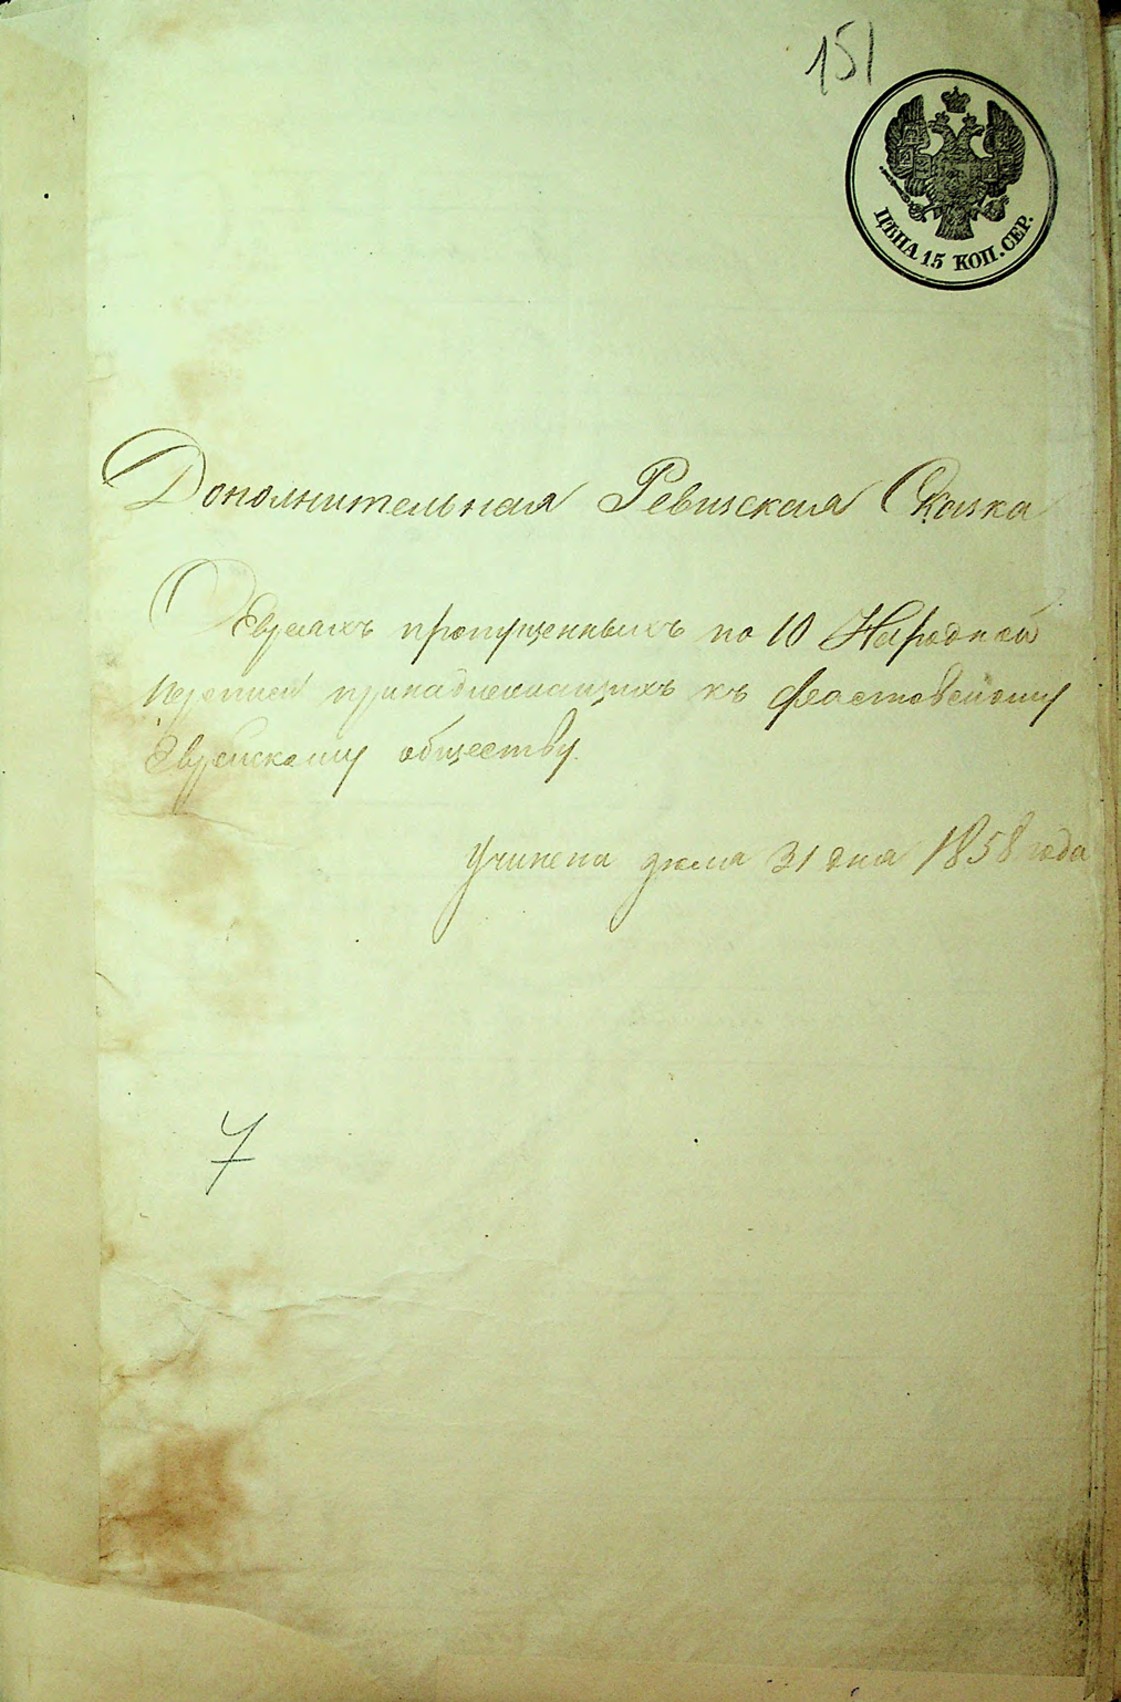 151
ЦѢНА 15 КОП. СЕР.
Дополнительная Ревизская Сказка
О Евреяхъ пропущенныхъ по 10 Народной
переписи принадлежащихъ къ Фастовскому
Еврейскому обществу.
Учинена Июля 31 дня 1858 года
7